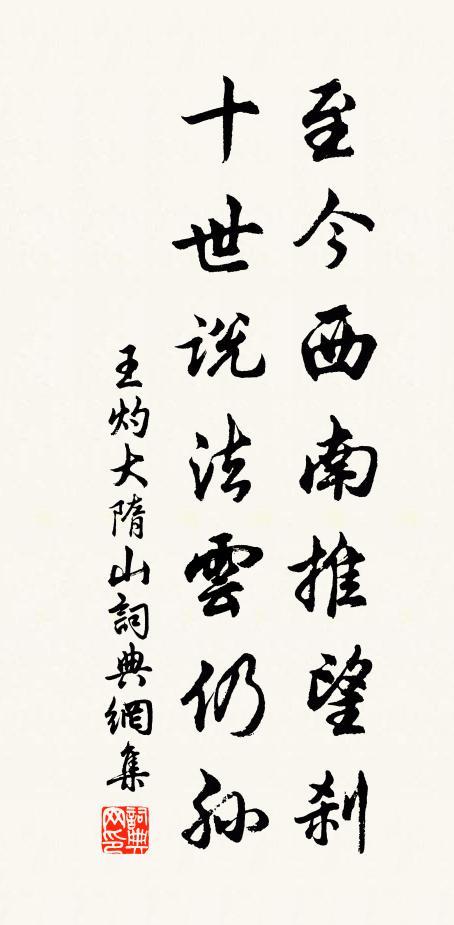 至今西南推望刹
十世説法雲仍孫
王灼大隋山詞典網集
詞典网印